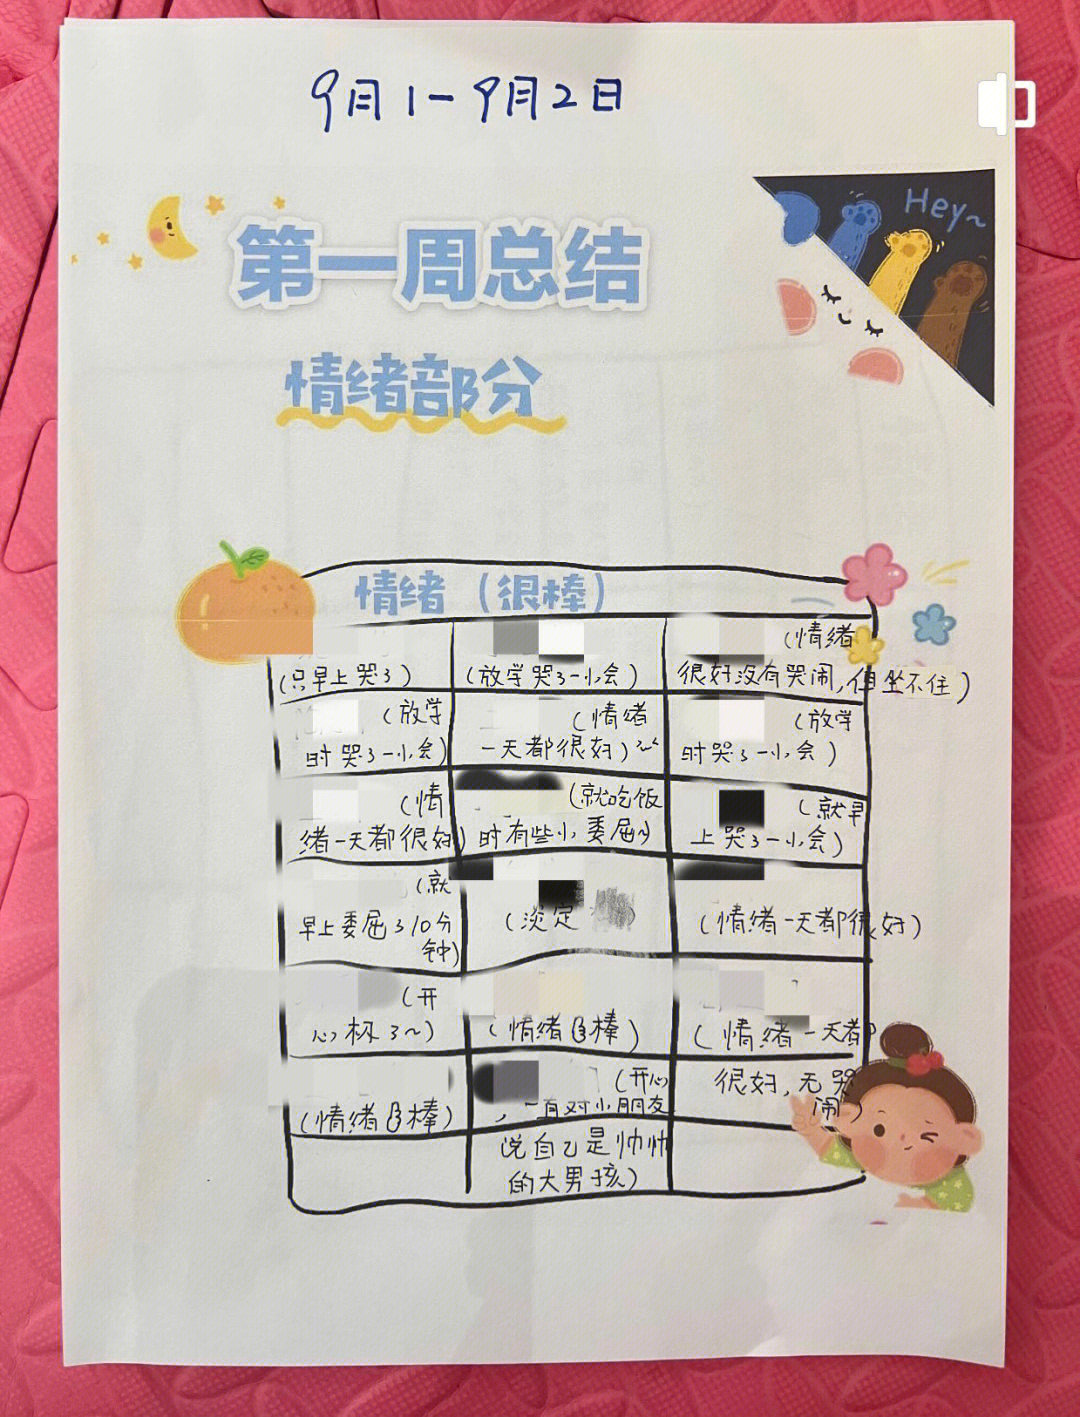 9月1-9月2日
Hey~
第一周总结
情绪部分
情绪（很棒）
(只早上哭了)
(放学哭了一小会)
(情绪
很好没有哭闹,但坐不住)
(放学
时哭了一小会)
(情绪
一天都很好)
(放学
时哭了一小会)
(情
绪一天都很好)
(就吃饭
时有些小委屈~)
(就早
上哭了一小会)
(就
早上委屈了10分
钟)
(淡定
(情绪一天都很好)
(开
心极了~)
(情绪很棒)
(情绪一天都
很好,无哭
闹)
(情绪很棒)
(开心
,一直对小朋友
说自己是帅帅
的大男孩)